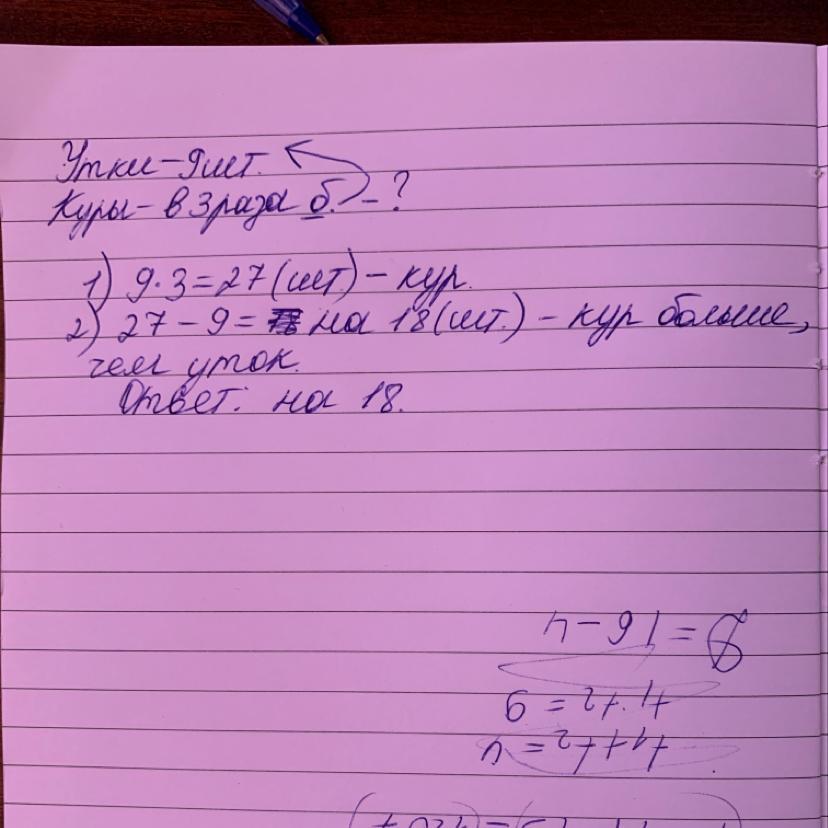 Утки - 9 шт.
Куры - в 3 раза б. - ?
1) 9·3=27 (шт.) - кур.
2) 27-9= на 18 (шт.) - кур больше,
чем уток.
Ответ: на 18.